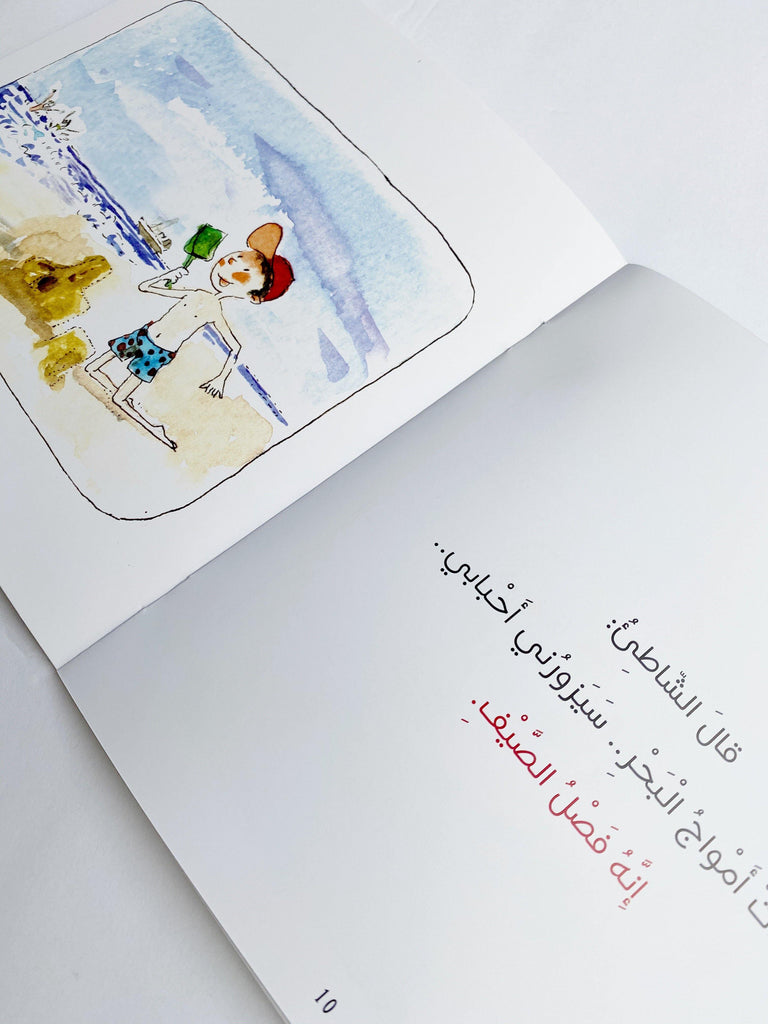 قالَ الشّاطِئُ:
أَمْواجُ الْبَحْرِ.. سَيَزورُني أَحْبابي..
إِنَّهُ فَصْلُ الصَّيْفِ.
10